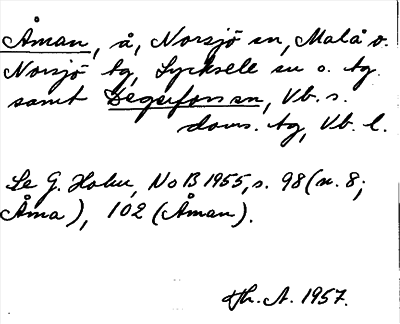 Åman, å, Norsjö sn, Malå o.
Norsjö tg, Lycksele sn o. tg.
samt Degerfors sn, Vb. s.
doms. tg, Vb. l.
Se G. Holm, NoB 1955, s. 98 (n. 8;
Åma), 102 (Åman).
Th. A. 1957.